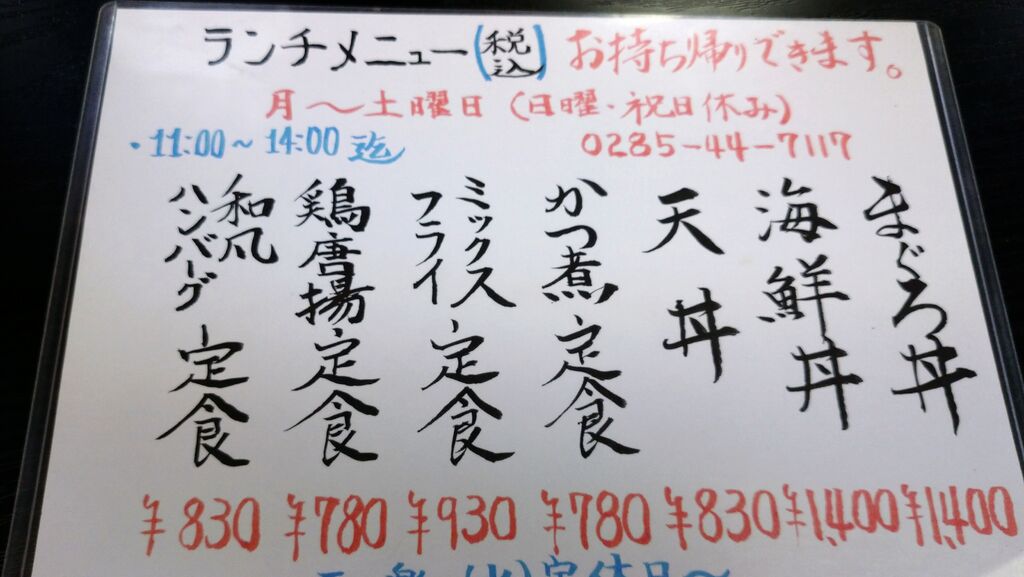 ランチメニュー(税込) お持ち帰りできます。
月〜土曜日(日曜・祝日休み)
・11:00〜14:00迄 0285-44-7117
まぐろ丼
海鮮丼
天丼
かつ煮定食
ミックス
フライ定食
鶏唐揚定食
和風
ハンバーグ定食
¥830 ¥780 ¥930 ¥780 ¥830 ¥1,400 ¥1,400